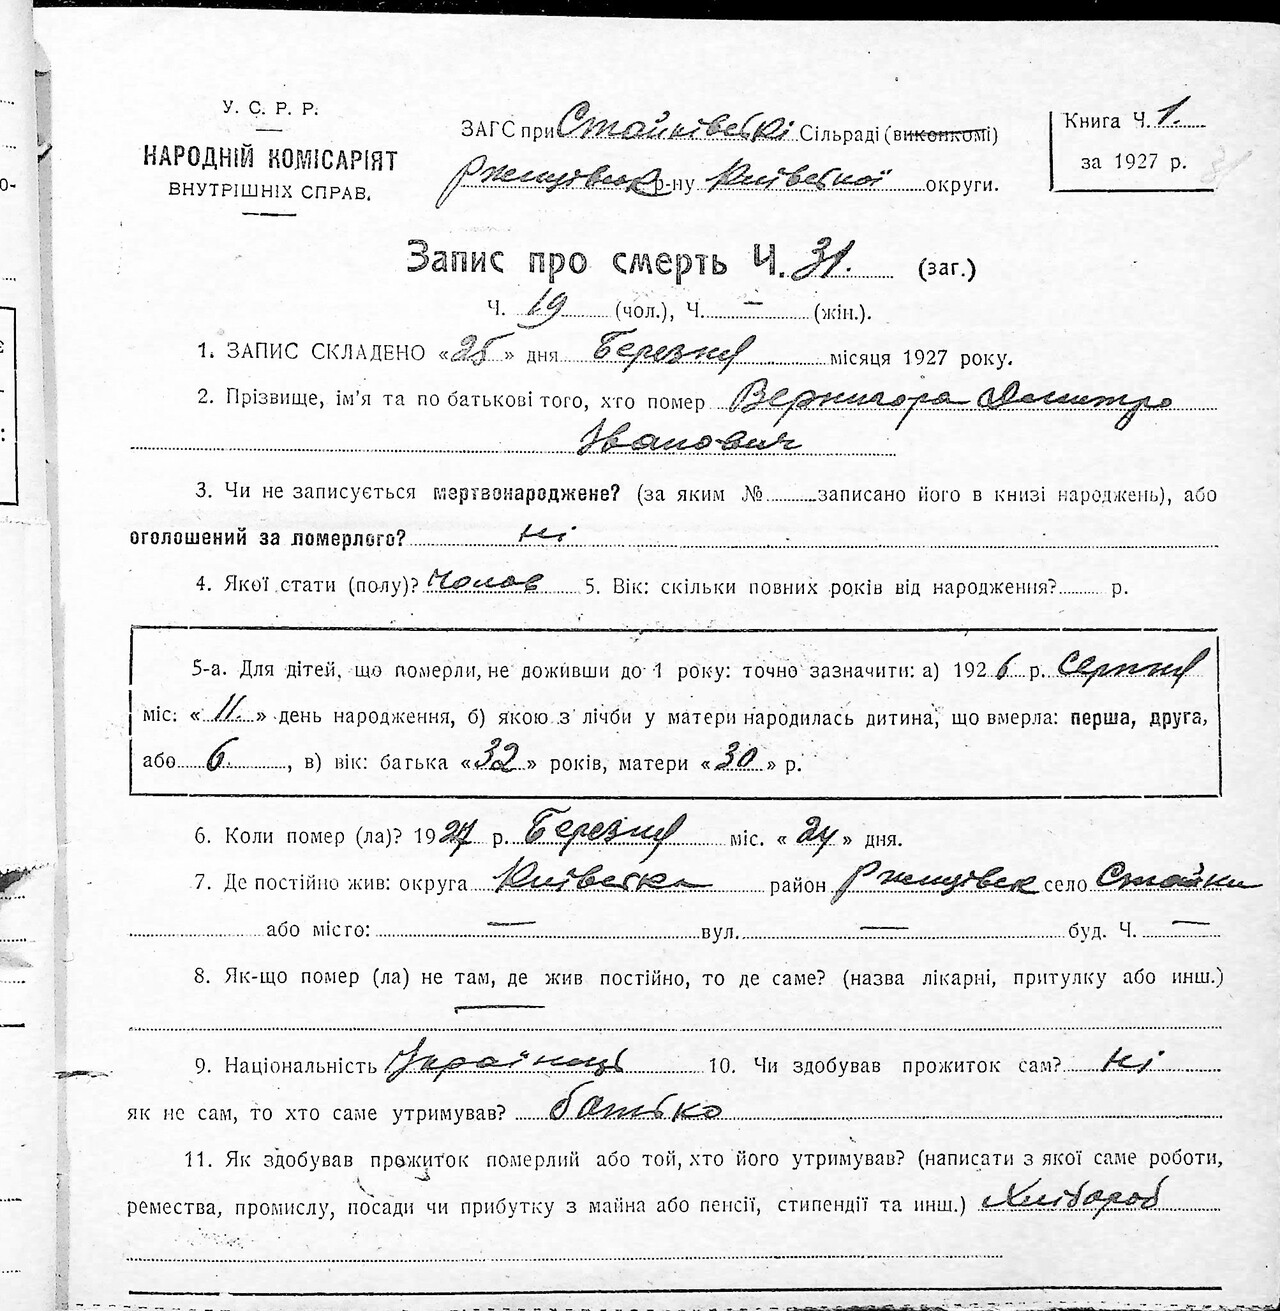 У. С. Р. Р.
НАРОДНІЙ КОМІСАРІЯТ
ВНУТРІШНІХ СПРАВ.
ЗАГС при Стайківській Сільраді (виконкомі)
Ржищівськ р-ну Київської округи.
Книга Ч. 1.
за 1927 р.
Запис про смерть Ч. 31. (заг.)
Ч. 19 (чол.), Ч. — (жін.).
1. ЗАПИС СКЛАДЕНО «25» дня Березня місяця 1927 року.
2. Прізвище, ім'я та по батькові того, хто помер Вернигора Дмитро
Іванович
3. Чи не записується мертвонароджене? (за яким № записано його в книзі народжень), або
оголошений за померлого? ні
4. Якої стати (полу)? Чолов 5. Вік: скільки повних років від народження? р.
5-а. Для дітей, що померли, не доживши до 1 року: точно зазначити: а) 1926 р. Серпня
міс: «11.» день народження, б) якою з лічби у матери народилась дитина, що вмерла: перша, друга,
або 6., в) вік: батька «32» років, матери «30» р.
6. Коли помер (ла)? 1927 р. Березня міс. «24» дня.
7. Де постійно жив: округа Київська район Ржищівськ село Стайки
або місто: — вул. — буд. Ч. —
8. Як-що помер (ла) не там, де жив постійно, то де саме? (назва лікарні, притулку або инш.)
—
9. Національність Українець 10. Чи здобував прожиток сам? ні
як не сам, то хто саме утримував? батько
11. Як здобував прожиток померлий або той, хто його утримував? (написати з якої саме роботи,
ремества, промислу, посади чи прибутку з майна або пенсії, стипендії та инш.) Хлібороб